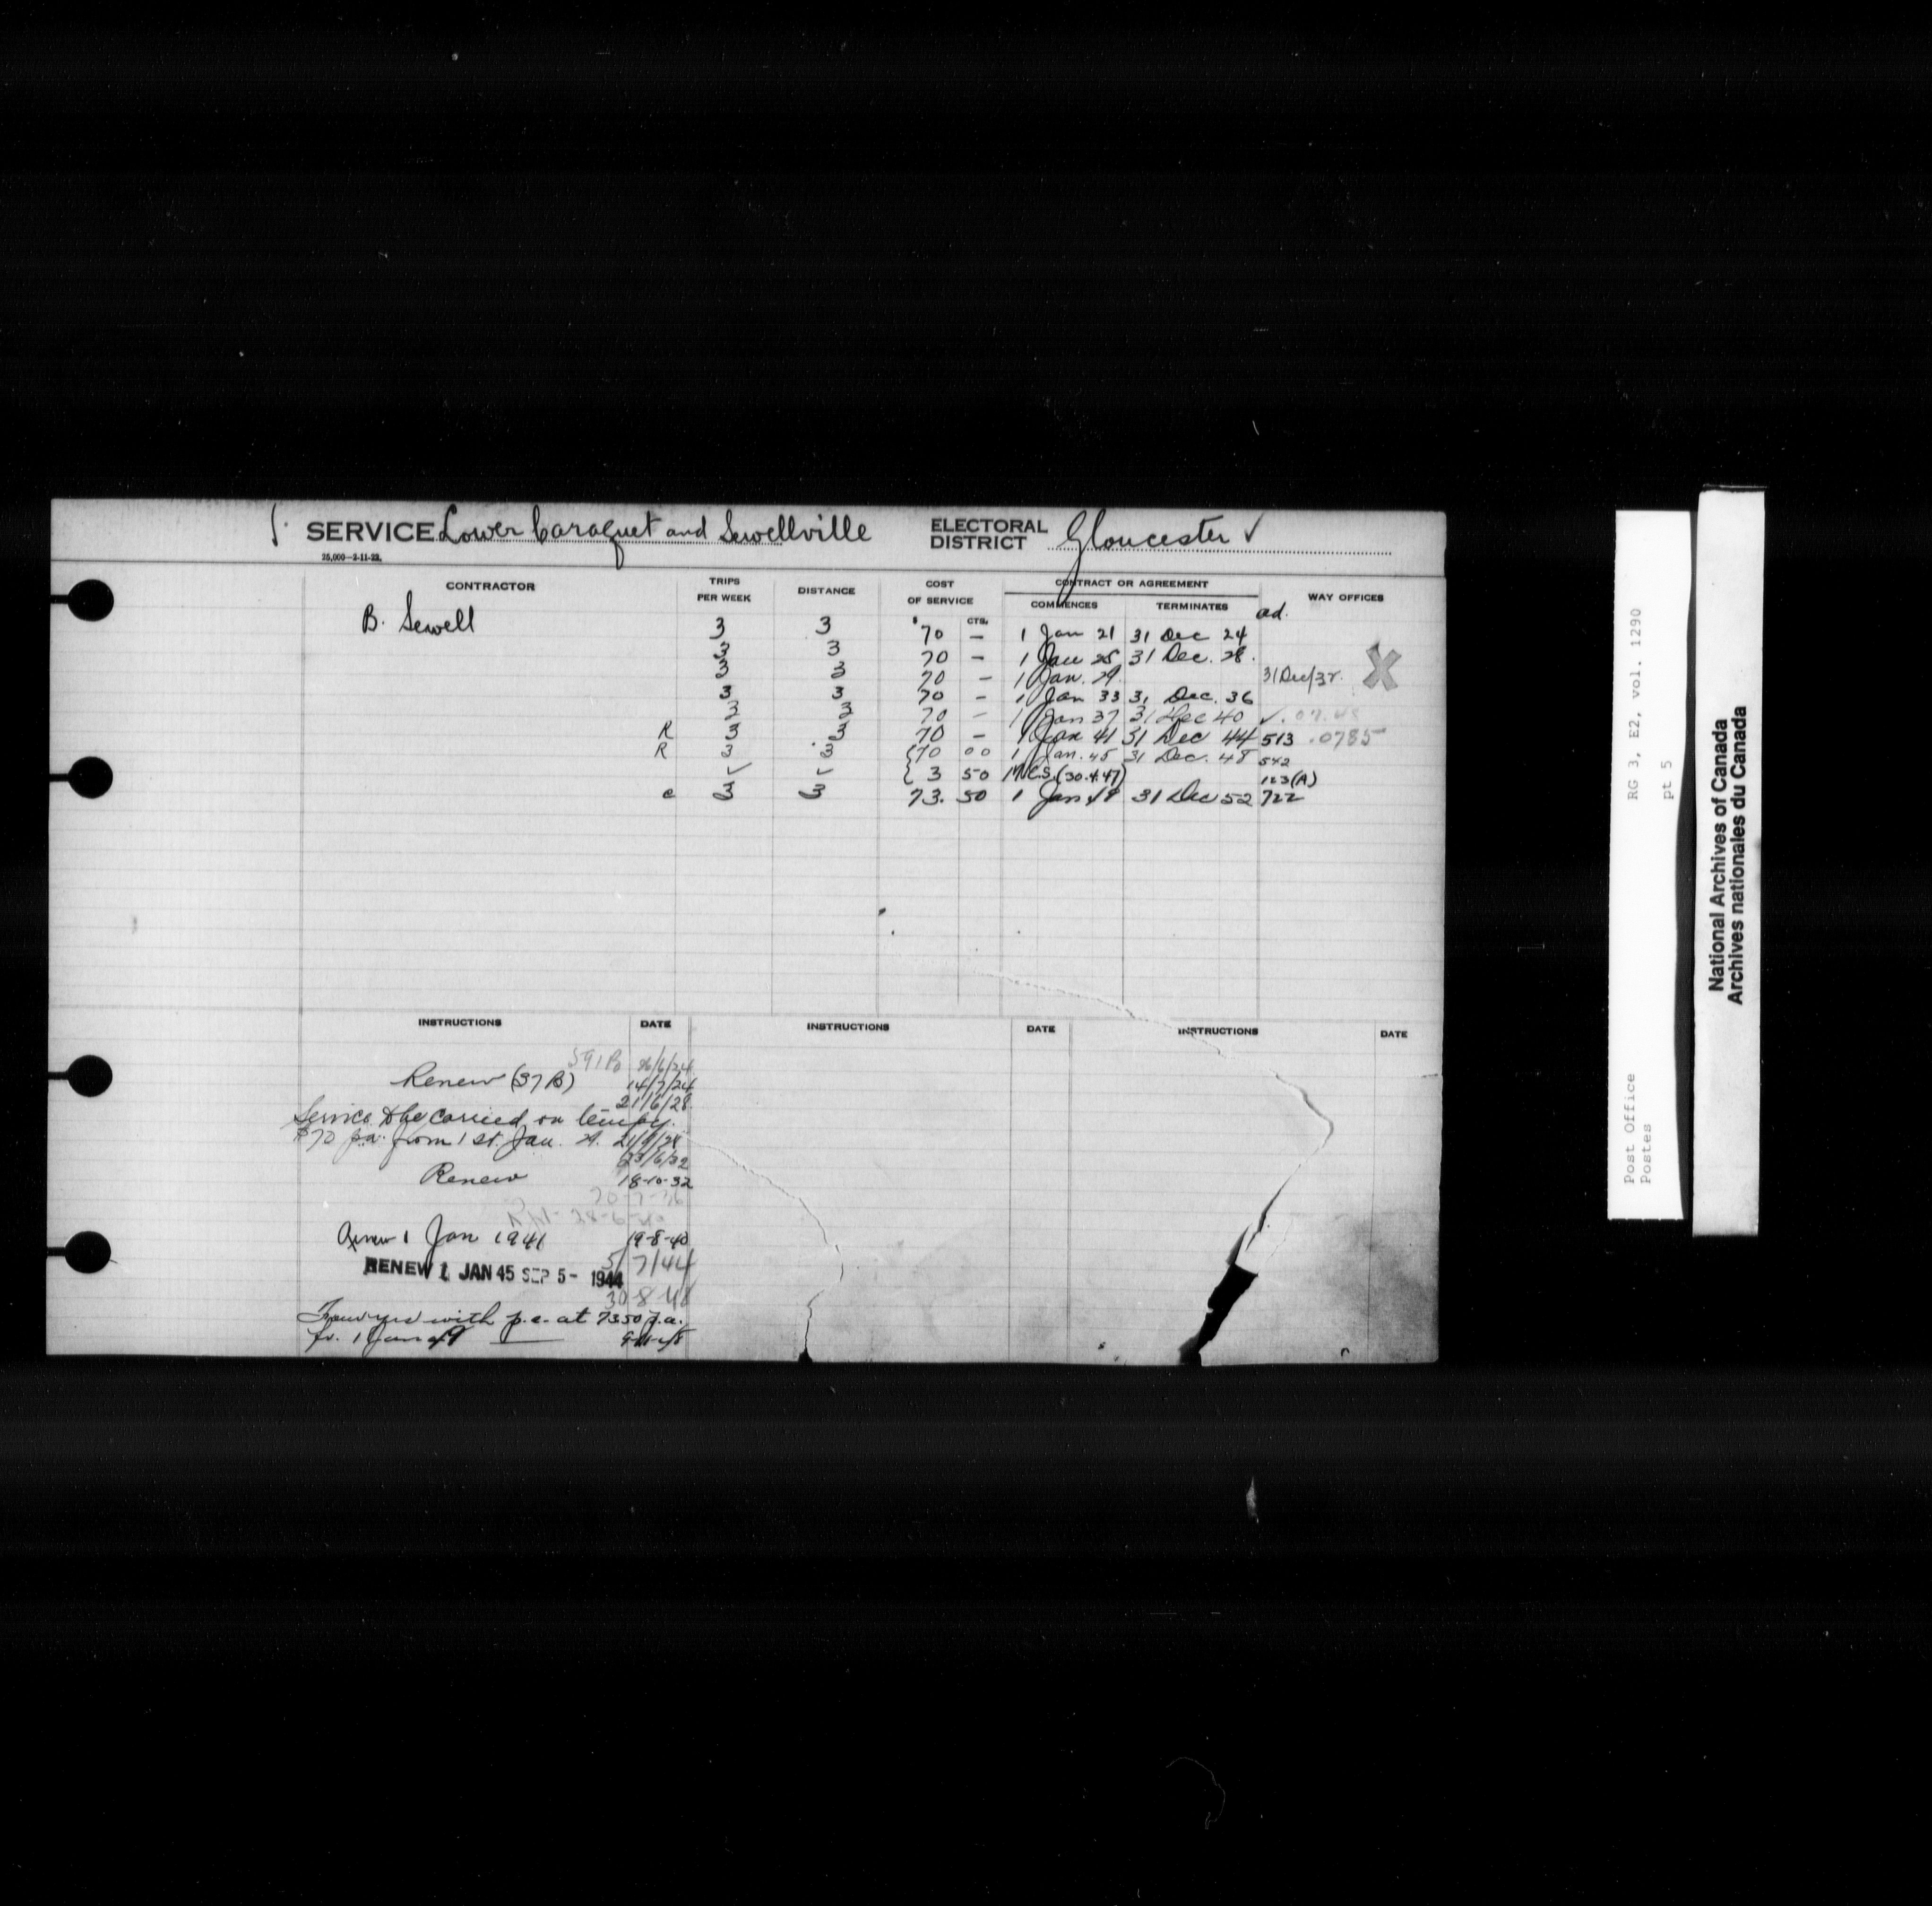 SERVICE Lower Caraquet and Sewellville ELECTORAL DISTRICT Gloucester ✓
25,000—2-11-23.
CONTRACTOR TRIPS PER WEEK DISTANCE COST OF SERVICE CONTRACT OR AGREEMENT WAY OFFICES
$ CTS. COMMENCES TERMINATES ad.
B. Sewell 3 3 70 – 1 Jan 21 31 Dec 24
3 3 70 – 1 Jan 25 31 Dec. 28.
3 3 70 – 1 Jan. 29. 31 Dec/32. X
3 3 70 – 1 Jan 33 31 Dec. 36
3 3 70 – 1 Jan 37 31 Dec 40 ✓
R 3 3 70 – 1 Jan 41 31 Dec 44 513 .0785
R 3 3 {70 00 1 Jan. 45 31 Dec. 48 542
✓ ✓ { 3 50 M.C.S. (30.4.47) 123(A)
c 3 3 73. 50 1 Jan 49 31 Dec 52 722
INSTRUCTIONS DATE INSTRUCTIONS DATE INSTRUCTIONS DATE
591B 26/6/24
Renew (37B) 14/7/24
21/6/28.
Service to be carried on tempy.
$70 pa. from 1st. Jan. 29. 21/9/28
23/6/32
Renew 18-10-32
20-7-36
28-6-40
Renew 1 Jan 1941 19-8-40
5/7/44
RENEW 1 JAN 45 SEP 5 - 1944
30-8-48
with p.c. at 73.50 p.a.
fr. 1 Jan 49 9-11-48
Post Office RG 3, E2, vol. 1290
Postes pt 5
National Archives of Canada
Archives nationales du Canada